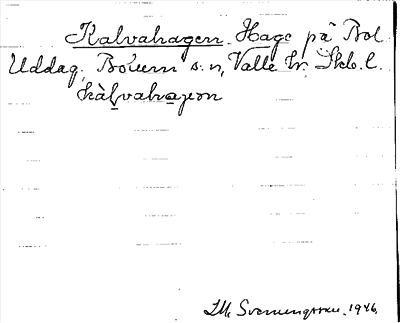 Kalvahagen. Hage på Bol
Uddag, Bolum s:n, Valle hr. Skb. l.
kàlvahagən
I.M. Svenungsson. 1946.